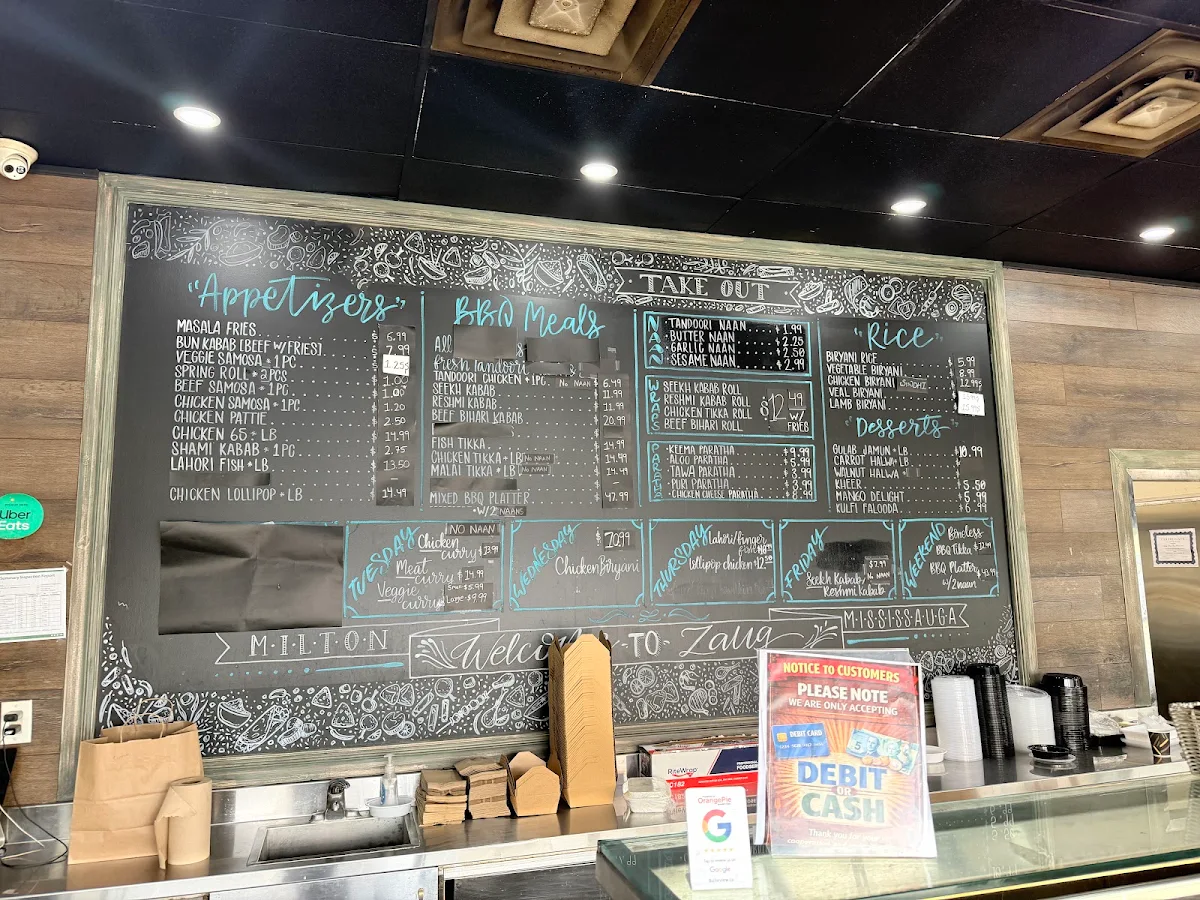 TAKE OUT
"Appetizers"
MASALA FRIES $ 6.99
BUN KABAB [BEEF W/FRIES] 7.99
VEGGIE SAMOSA * 1PC 1.25
SPRING ROLL * 2PCS $ 1.00
BEEF SAMOSA * 1PC
CHICKEN SAMOSA * 1PC 1.20
CHICKEN PATTIE 2.50
CHICKEN 65 * LB 14.99
SHAMI KABAB * 1PC 2.75
LAHORI FISH * LB 13.50
CHICKEN LOLLIPOP * LB 14.49
BBQ Meals
All
fresh tandoori
TANDOORI CHICKEN * 1PC. NO NAAN $ 6.49
SEEKH KABAB 11.99
RESHMI KABAB 11.99
BEEF BIHARI KABAB 20.99
FISH TIKKA 14.99
CHICKEN TIKKA * LB NO NAAN 14.49
MALAI TIKKA * LB NO NAAN 14.99
MIXED BBQ PLATTER 47.99
*W/2 NAANS
NAAN
TANDOORI NAAN $1.99
BUTTER NAAN $2.25
GARLIC NAAN $2.50
SESAME NAAN $2.99
WRAPS
SEEKH KABAB ROLL
RESHMI KABAB ROLL
CHICKEN TIKKA ROLL
BEEF BIHARI ROLL
$12.49
W/ FRIES
KEEMA PARATHA $9.99
ALOO PARATHA $5.99
TAWA PARATHA $3.99
PURI PARATHA $3.99
CHICKEN CHEESE PARATHA $8.99
"Rice"
BIRYANI RICE $ 5.99
VEGETABLE BIRYANI $ 8.99
CHICKEN BIRYANI SINDHI $ 12.99
VEAL BIRYANI
LAMB BIRYANI
"Desserts"
GULAB JAMUN * LB $10.99
CARROT HALWA * LB
WALNUT HALWA
KHEER $ 3.50
MANGO DELIGHT $ 5.99
KULFI FALOODA $ 6.99
TUESDAY
NO NAAN
Chicken curry $13.99
Meat curry $14.99
Veggie curry
Small $5.99
Large $9.99
WEDNESDAY
$ 10.99
Chicken Biryani
THURSDAY
Lahori/finger
fish
lollipop chicken
FRIDAY
$7.99
NO NAAN
Seekh Kabab
Reshmi Kabab
WEEKEND
Boneless
BBQ Tikka
BBQ Platter
w/2 naan
MILTON
TO Zauq
MISSISSAUGA
Uber
Eats
NOTICE TO CUSTOMERS
PLEASE NOTE
WE ARE ONLY ACCEPTING
DEBIT CARD
DEBIT
OR
CASH
Thank you
OrangePie
G
Google